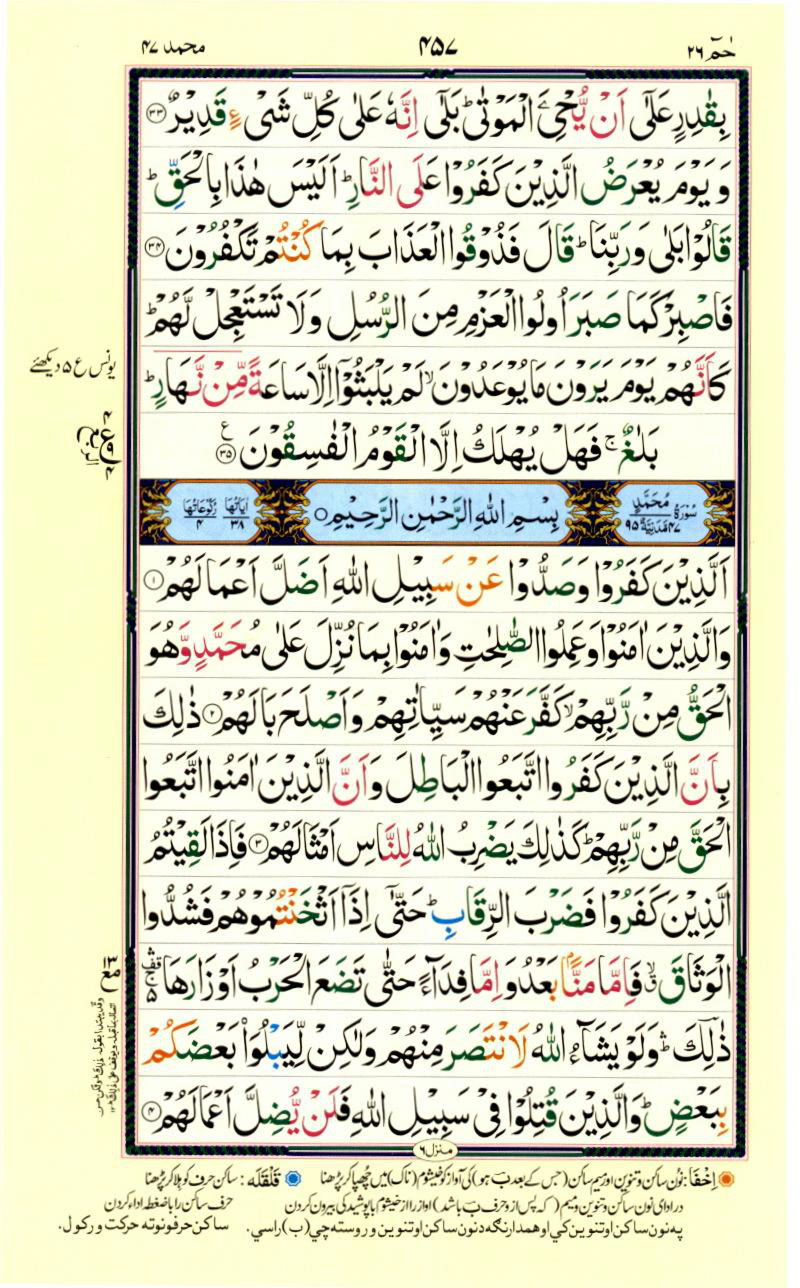 حٰمٓ ٢٦
٤٥٧
محمد ٤٧
بِقٰدِرٍ عَلٰٓى اَنْ يُّحْیِۦَ الْمَوْتٰىؕ بَلٰٓى اِنَّهٗ عَلٰى كُلِّ شَیْءٍ قَدِیْرٌ ۝٣٣
وَ یَوْمَ یُعْرَضُ الَّذِیْنَ كَفَرُوْا عَلَى النَّارِؕ اَلَیْسَ هٰذَا بِالْحَقِّؕ
قَالُوْا بَلٰى وَرَبِّنَاؕ قَالَ فَذُوْقُوا الْعَذَابَ بِمَا كُنْتُمْ تَكْفُرُوْنَ ۝٣٤
فَاصْبِرْ كَمَا صَبَرَ اُولُوا الْعَزْمِ مِنَ الرُّسُلِ وَلَا تَسْتَعْجِلْ لَّهُمْؕ
كَاَنَّهُمْ یَوْمَ یَرَوْنَ مَا یُوْعَدُوْنَۙ لَمْ یَلْبَثُوْۤا اِلَّا سَاعَةً مِّنْ نَّهَارٍؕ
یونس ع ۵ دیکھئے
بَلٰغٌۚ فَهَلْ یُهْلَكُ اِلَّا الْقَوْمُ الْفٰسِقُوْنَ ۝٣٥ ع
سُوْرَةُ مُحَمَّدٍ ٤٧ مَدَنِیَّةٌ ٩٥
بِسْمِ اللهِ الرَّحْمٰنِ الرَّحِیْمِ ○
اٰیَاتُهَا ٣٨ رُكُوْعَاتُهَا ٤
اَلَّذِیْنَ كَفَرُوْا وَصَدُّوْا عَنْ سَبِیْلِ اللهِ اَضَلَّ اَعْمَالَهُمْ ۝١
وَالَّذِیْنَ اٰمَنُوْا وَعَمِلُوا الصّٰلِحٰتِ وَاٰمَنُوْا بِمَا نُزِّلَ عَلٰى مُحَمَّدٍ وَّهُوَ
الْحَقُّ مِنْ رَّبِّهِمْۙ كَفَّرَ عَنْهُمْ سَیِّاٰتِهِمْ وَاَصْلَحَ بَالَهُمْ ۝٢ ذٰلِكَ
بِاَنَّ الَّذِیْنَ كَفَرُوا اتَّبَعُوا الْبَاطِلَ وَاَنَّ الَّذِیْنَ اٰمَنُوا اتَّبَعُوا
الْحَقَّ مِنْ رَّبِّهِمْؕ كَذٰلِكَ یَضْرِبُ اللهُ لِلنَّاسِ اَمْثَالَهُمْ ۝٣ فَاِذَا لَقِیْتُمُ
الَّذِیْنَ كَفَرُوْا فَضَرْبَ الرِّقَابِؕ حَتّٰۤى اِذَاۤ اَثْخَنْتُمُوْهُمْ فَشُدُّوا
الْوَثَاقَۙ فَاِمَّا مَنًّۢا بَعْدُ وَاِمَّا فِدَآءً حَتّٰى تَضَعَ الْحَرْبُ اَوْزَارَهَا
ذٰلِكَۛؕ وَلَوْ یَشَآءُ اللهُ لَانْتَصَرَ مِنْهُمْ وَلٰكِنْ لِّیَبْلُوَا۟ بَعْضَكُمْ
بِبَعْضٍؕ وَالَّذِیْنَ قُتِلُوْا فِیْ سَبِیْلِ اللهِ فَلَنْ یُّضِلَّ اَعْمَالَهُمْ ۝٤
منزل ٦
اِخْفَا: نون ساکن و تنوین اور میم ساکن (جس کے بعد ب ہو) کی آواز کو خیشوم (ناک) میں چھپا کر پڑھنا قَلْقَلَه: ساکن حرف کو ہلا کر پڑھنا
در ادای نون ساکن و تنوین و میم (که پس از و حرف ب باشد) اواز را از خیشوم با پوشیدگی بیرون کردن حرف ساکن را با ضغطه ادا کردن
په نون ساکن او تنوین کي او همدارنګه د نون ساکن او تنوین وروسته چي (ب) راسي. ساکن حرفونو ته حرکت ورکول.